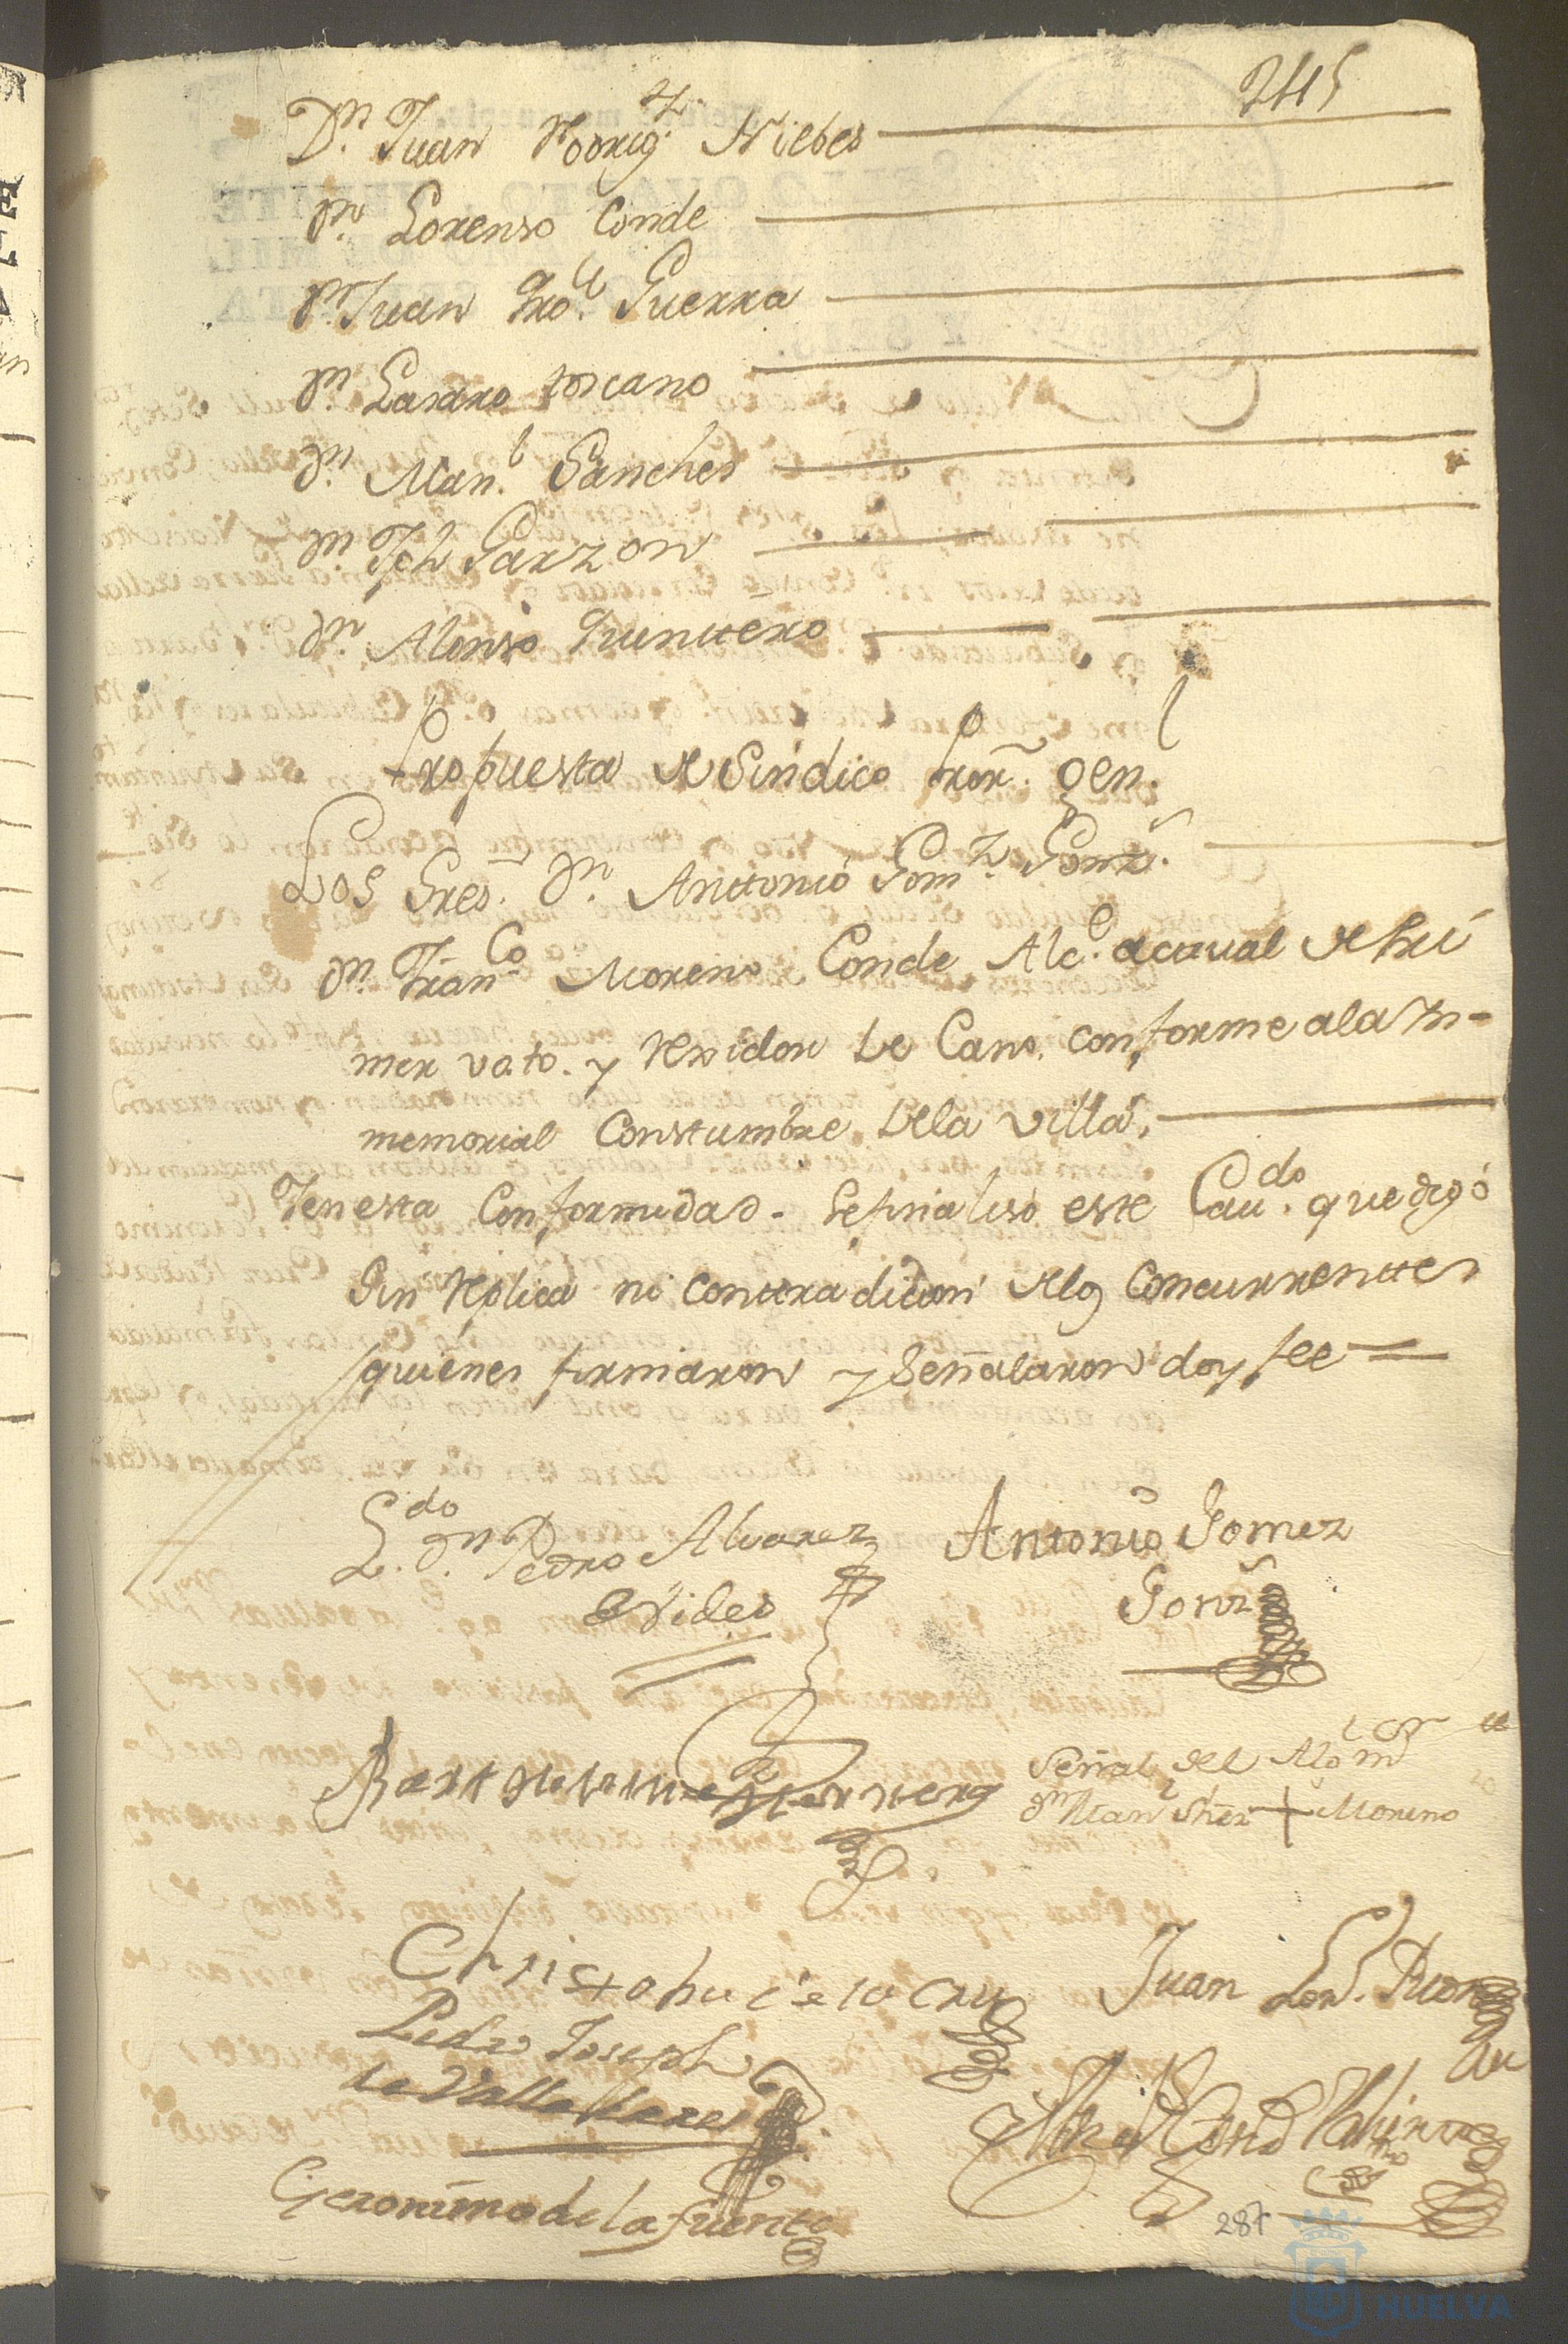 245
Dn. Juan Rodrig.z Niebes
Dn. Lorenso Conde
Dn. Juan Gro.l Guerra
Dn. Lasaro toscano
Dn. Man.l Sanches
Dn. Jph Garzon
Dn. Alonso Quinttero
Propuesta de Sindico Pror. gen.l
Los Sres. Dn. Anttonio Gom.z Gonz.
Dn. Fran.co Moreno Conde Alc.e acaval de Pri
mer voto. y Rexidor De Cano. conforme ala In-
memorial Constumbre Dela villa,
Y en esta Conformidad. Se finaliso este Cau.do. que dejó
Sin Replica ni conttradicion de los Concurrenttes
quienes firmaron y Señalaron doy fee
L.do Dn. Pedro Alvarez Antonio Gomez
Vides Gonz
Bartolome
Señal del Alg.l m.or
Dn Man.l Shez + Moreno
Christobal de la Cruz Juan
Pedro Joseph
de Valladares
Geronimo de la fuente
287
HUELVA